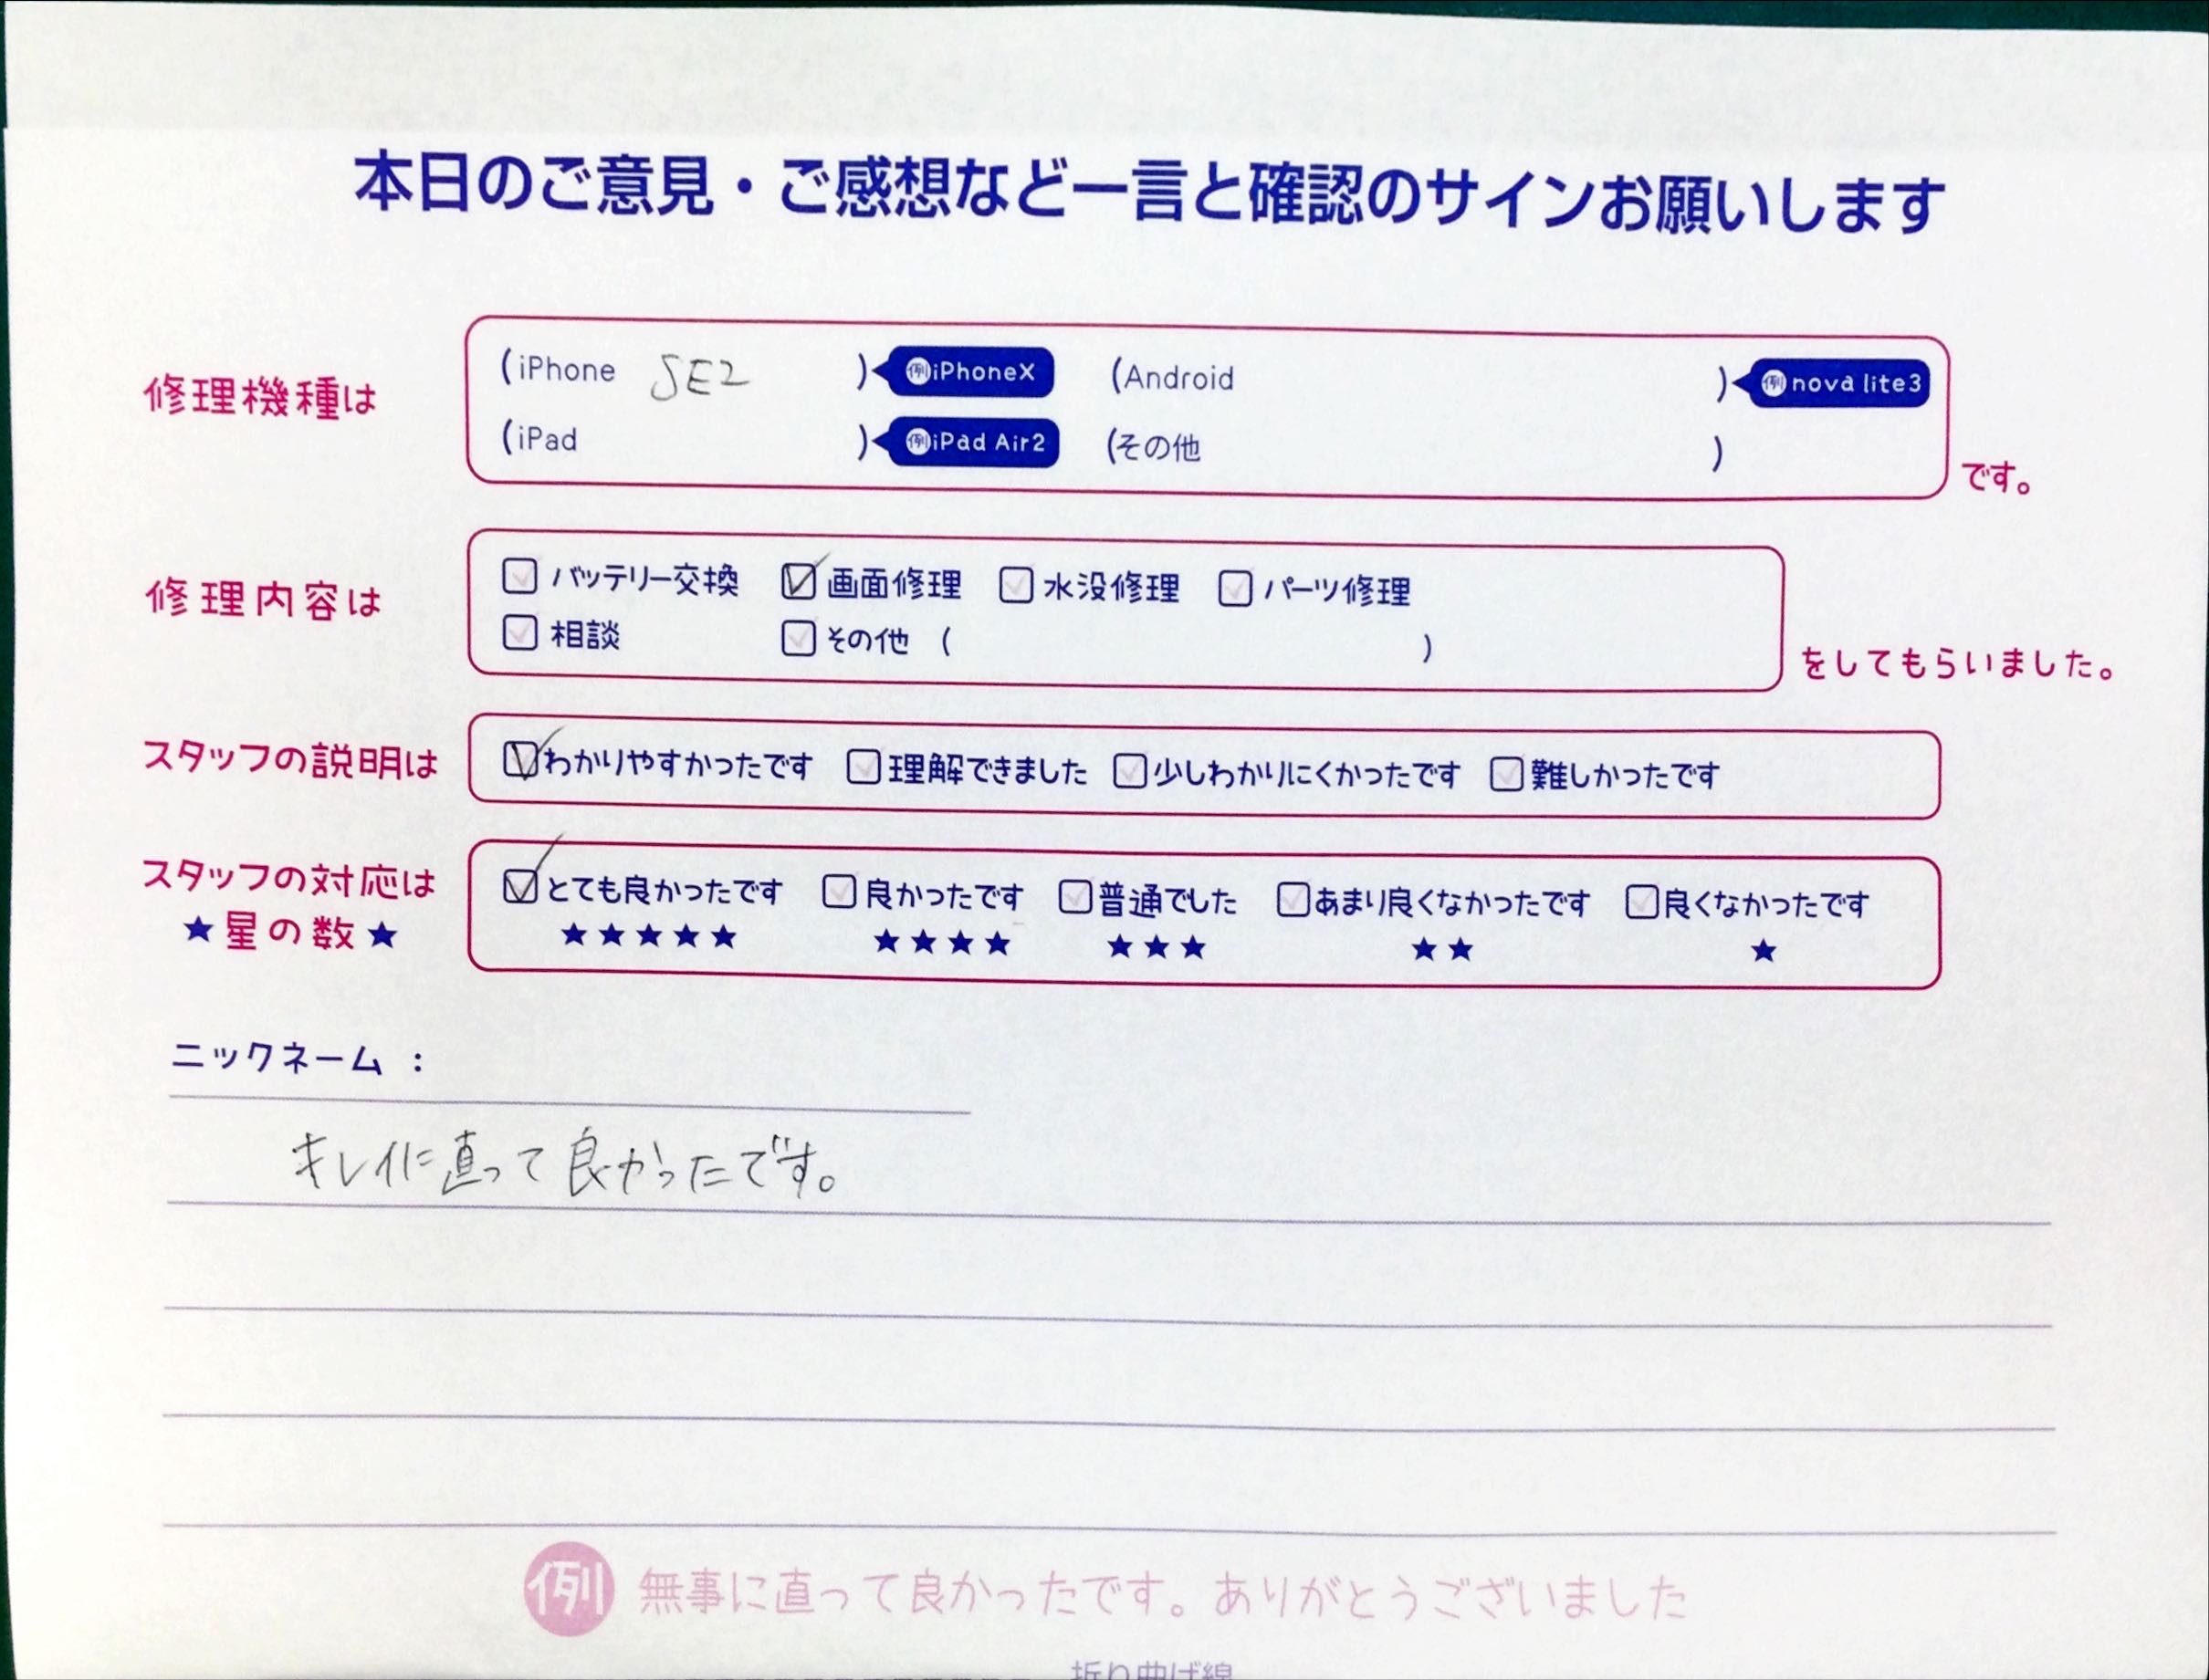 本日のご意見・ご感想など一言と確認のサインお願いします
修理機種は
(iPhone SE2 ) 例iPhoneX (Android ) 例nova lite3
(iPad ) 例iPad Air2 (その他 )
です。
修理内容は
バッテリー交換 画面修理 水没修理 パーツ修理
相談 その他 ( )
をしてもらいました。
スタッフの説明は
わかりやすかったです 理解できました 少しわかりにくかったです 難しかったです
スタッフの対応は
★星の数★
とても良かったです 良かったです 普通でした あまり良くなかったです 良くなかったです
★★★★★ ★★★★ ★★★ ★★ ★
ニックネーム :
キレイに直って良かったです。
例 無事に直って良かったです。ありがとうございました
折り曲げ線